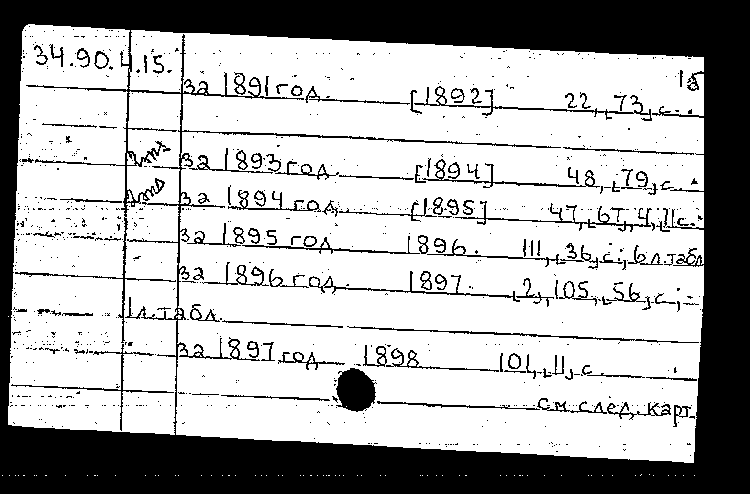 34.90.4.15. 15
за 1891 год. [1892] 22, [73] с.
за 1893 год. [1894] 48, [79] с.
за 1894 год. [1895] 47, [67, 4, II с.
за 1895 год 1896. III, [36] с.; 6 л. табл
за 1896 год. 1897. [2], 105, [56] с.;
1 л. табл.
за 1897 год 1898 101, [II] с.
см. след. карт.